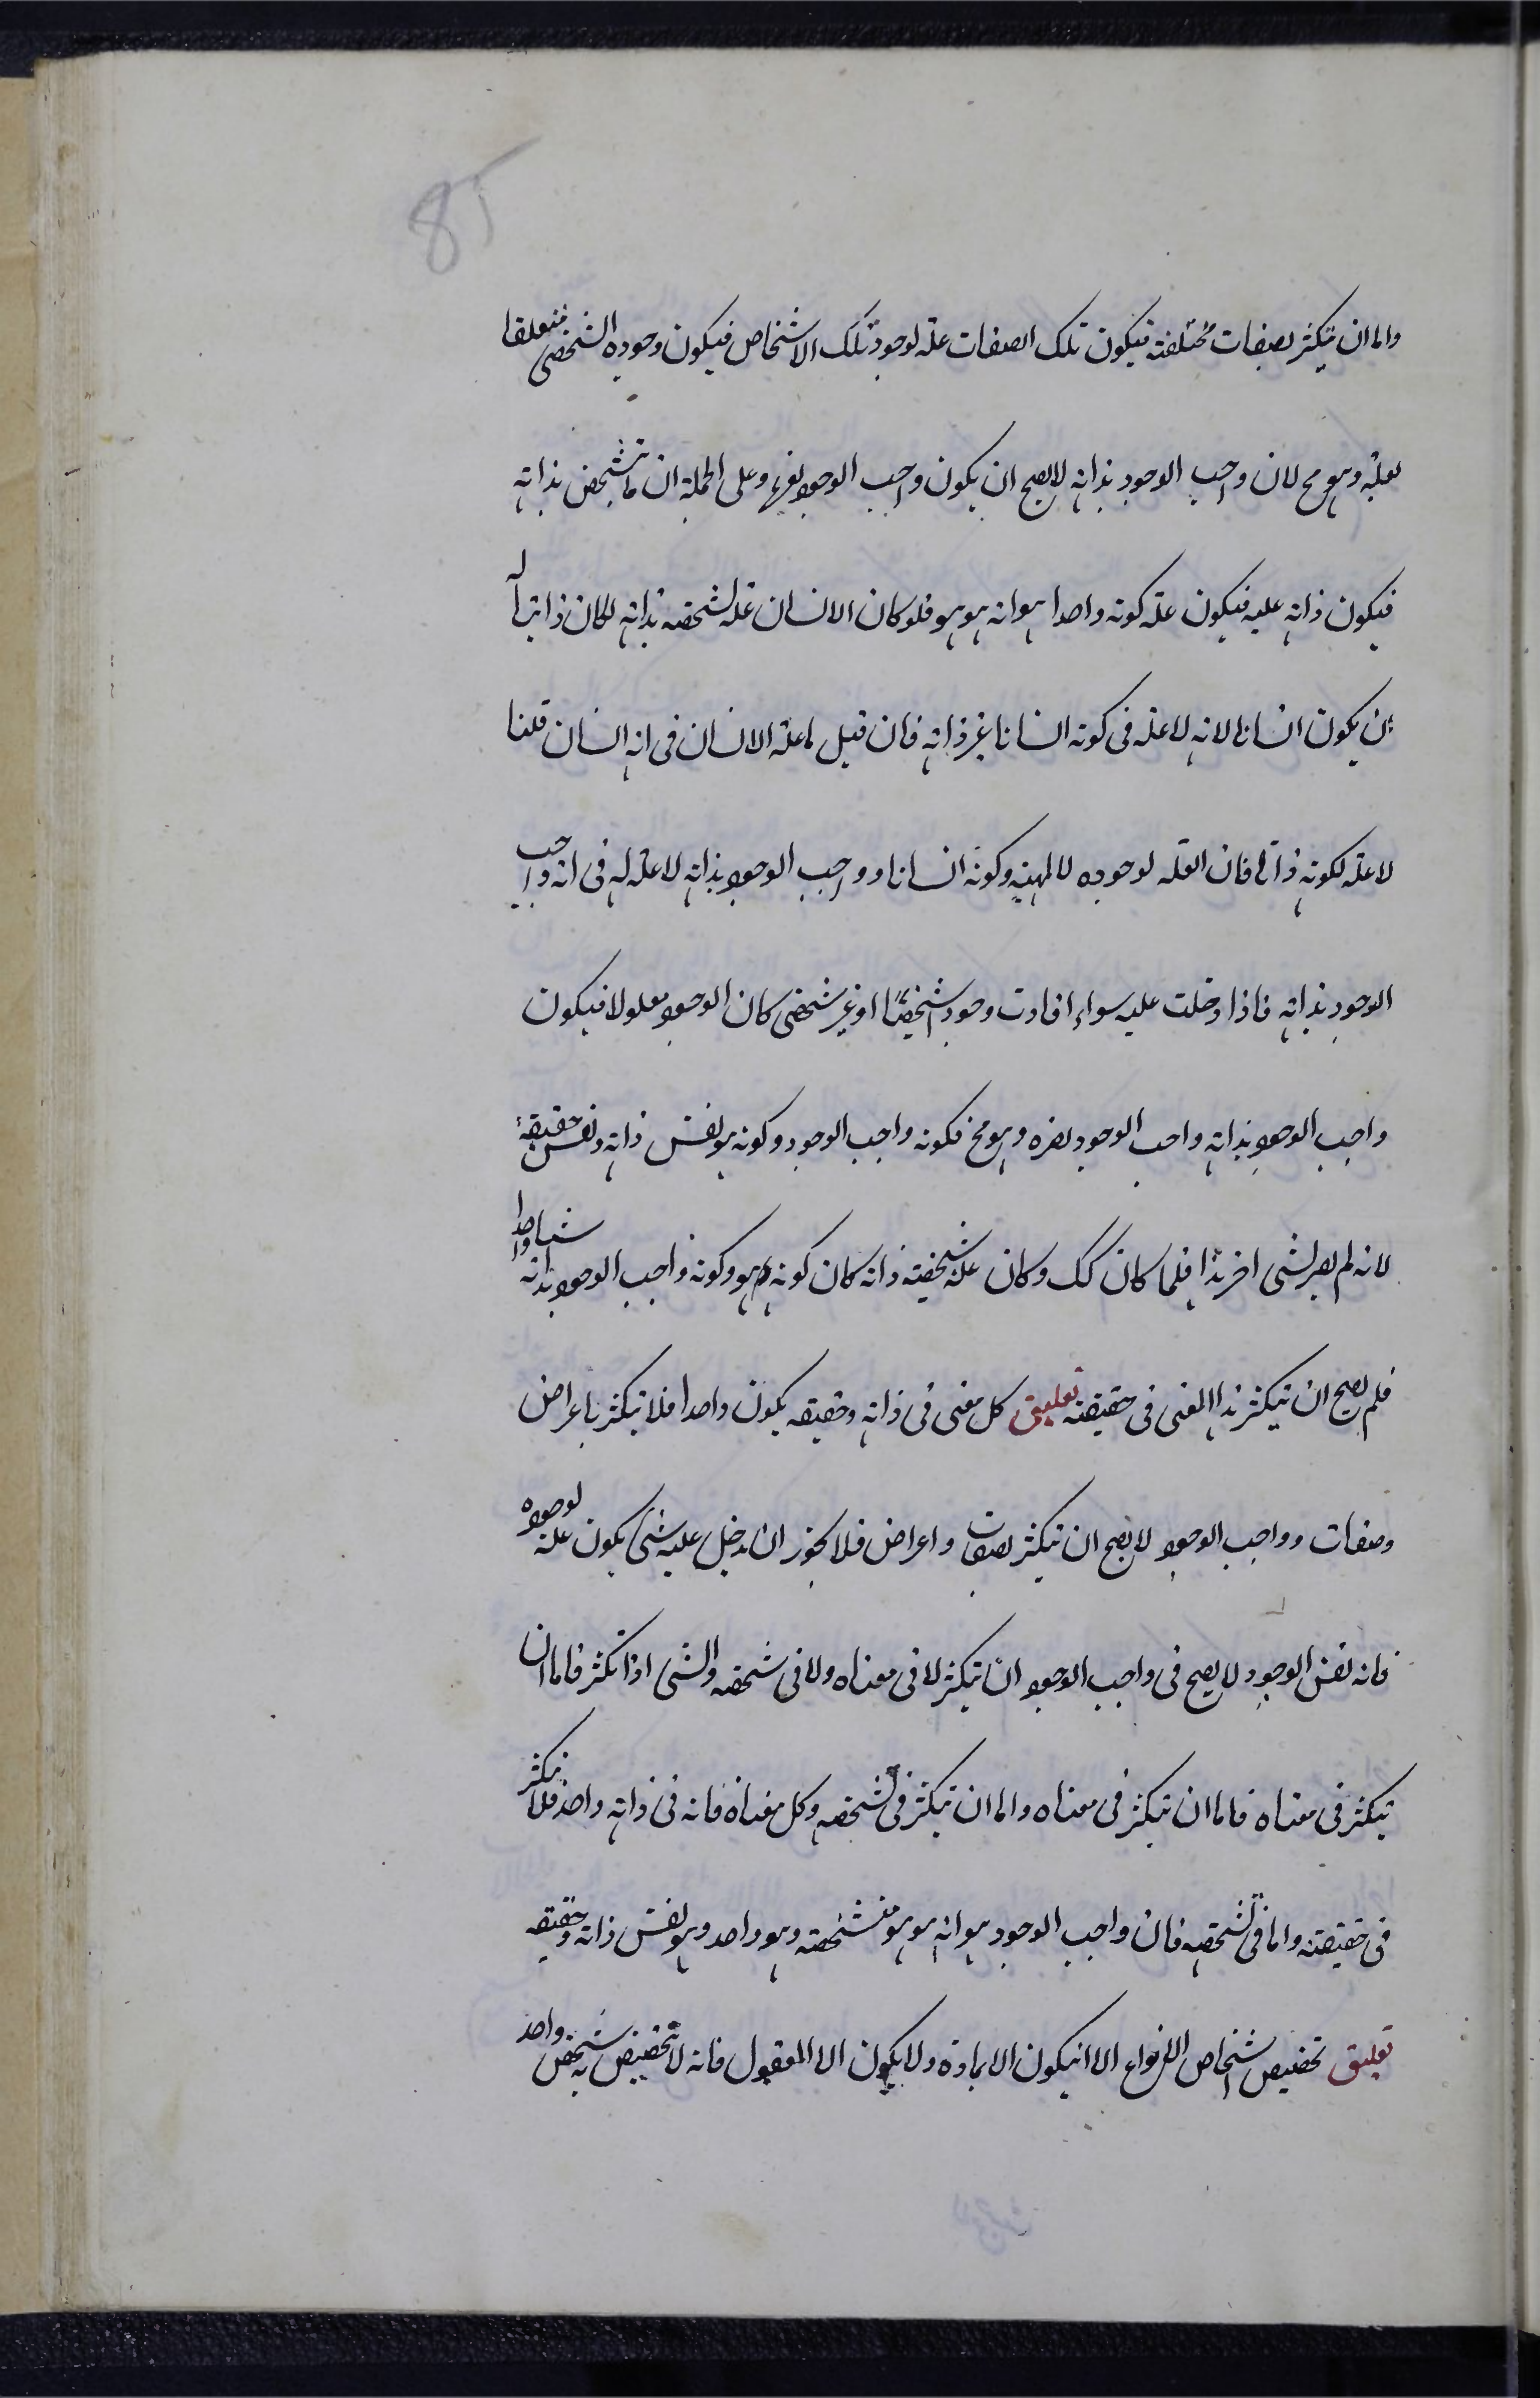 85
واما ان يتكثر بصفات مختلفة فيكون تلك الصفات علة لوجود تلك الاشخاص فيكون وجوده الشخصى متعلقا
بعلة وهو مح لان واجب الوجود بذاته لا يصح ان يكون واجب الوجود بغيره وعلى الجملة ان ما تشخص بذاته
فيكون ذاته عليه فيكون علة كونه واحدا هو انه هو هو فلو كان الانسان علة تشخصه بذاته لكان ذاتيا له
ان يكون انسانا لانه لا علة فى كونه انسانا غير ذاته فان قيل ما علة الانسان فى انه انسان قلنا
لا علة لكونه ذاتا فان العلة لوجوده لا لمهيته وكونه انسانا وواجب الوجود بذاته لا علة له فى انه واجب
الوجود بذاته فاذا دخلت عليه سواء افادت وجود شخصيا او غير شخصى كان الوجود معلولا فيكون
واجب الوجود بذاته واجب الوجود بغيره وهو مح فكونه واجب الوجود وكونه هو نفس ذاته ونفس حقيقة
لانه لم يصر لشى اخر هذا فلما كان كك وكان علة شخصيته ذاته كان كونه هو هو وكونه واجب الوجود بذاته شيئا واحدا
فلم يصح ان يتكثر هذا المعنى فى حقيقته تعليق كل معنى فى ذاته وحقيقته يكون واحدا فلا يتكثر باعراض
وصفات وواجب الوجود لا يصح ان يتكثر بصفات واعراض فلا يجوز ان يدخل عليه شى يكون علة لوجوده
فانه نفس الوجود لا يصح فى واجب الوجود ان يتكثر لا فى معناه ولا فى تشخصه والشى اذا تكثر فاما ان
يتكثر فى معناه فاما ان يتكثر فى معناه واما ان يتكثر فى تشخصه وكل معناه فانه فى ذاته واحد فلا يتكثر
فى حقيقته واما فى تشخصه فان واجب الوجود هو انه هو هو تشخصه وهو واحد وهو نفس ذاته وحقيقته
تعليق تخصيص اشخاص الانواع الا ان يكون الا بمادة ولا يكون الا المعقول فانه لا تخصيص به شخص واحد